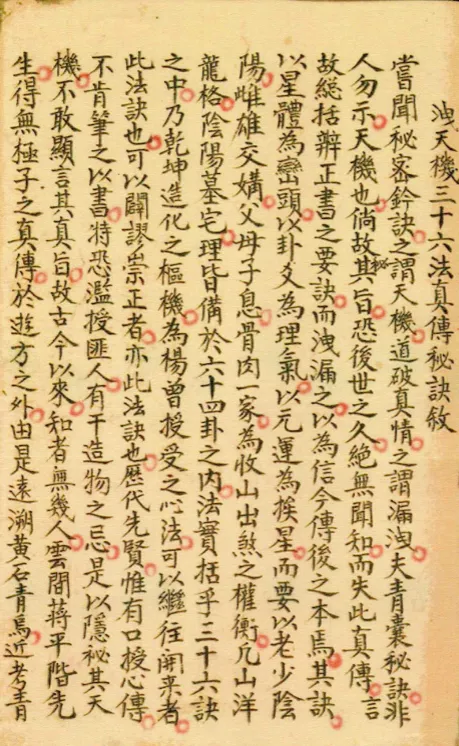 洩天機三十六法真傳秘訣敘
嘗聞秘密鈐訣之謂天機道破真情之謂漏洩夫青囊秘訣非
人勿示天機也倘故秘其旨恐後世之久絕無聞知而失此真傳言
故総括辨正書之要訣而洩漏之以為信今傳後之本焉其訣
以星體為巒頭以卦爻為理氣以元運為挨星而要以老少陰
陽雌雄交媾父母子息骨肉一家為收山出煞之權衡凢山洋
龍格陰陽墓宅理皆備於六十四卦之内法實括乎三十六訣
之中乃乾坤造化之樞機為楊曾授受之心法可以繼往開来者
此法訣也可以闢謬崇正者亦此法訣也歷代先賢惟有口授心傳
不肯筆之以書特恐濫授匪人有干造物之忌是以隱祕其天
機不敢顯言其真旨故古今以來知者無幾人雲間蒋平階先
生得無極子之真傳於遊方之外由是遠溯黃石青烏近考青